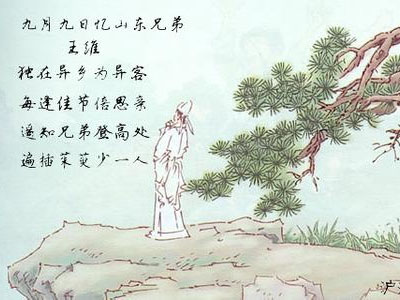 九月九日忆山东兄弟
王维
独在异乡为异客
每逢佳节倍思亲
遥知兄弟登高处
遍插茱萸少一人